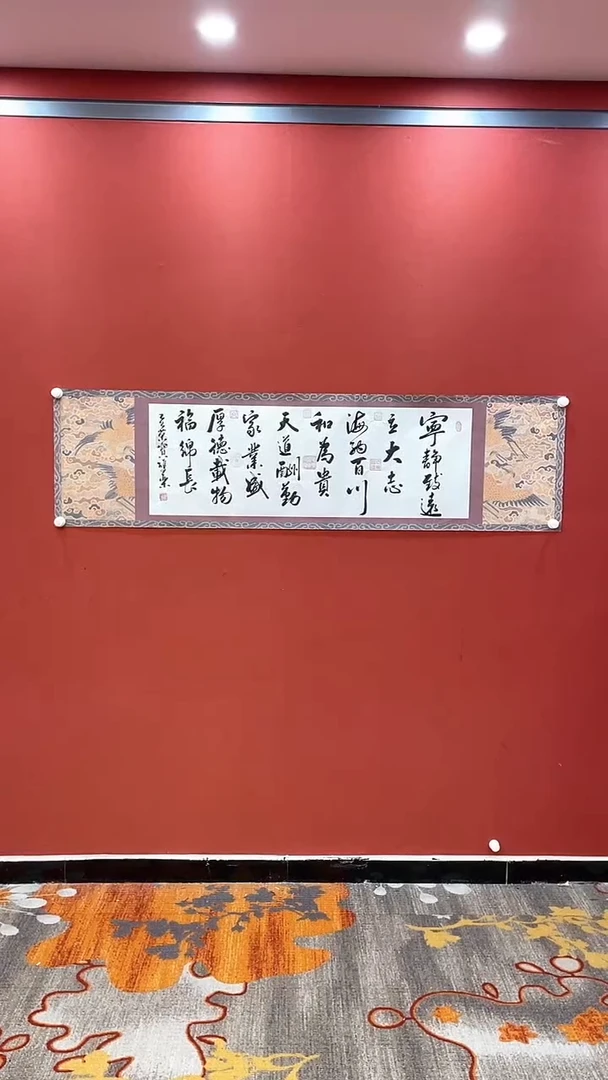 寧静致遠
立大志
海納百川
和為貴
天道酬勤
家業盛
厚德載物
福綿長